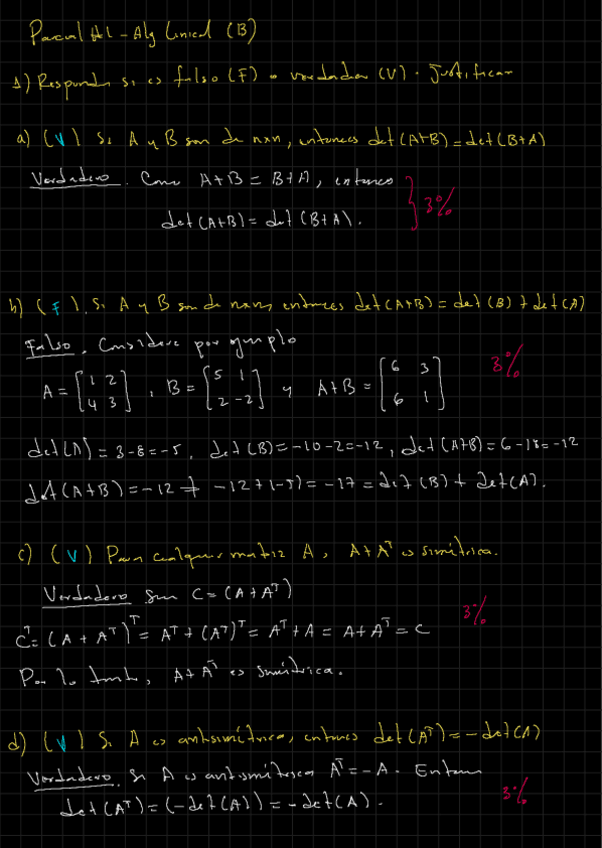 Parcial #1 - Alg Lineal (B)
1) Responda si es falso (F) o verdadero (V). Justificar
a) (V) Si A y B son de nxn, entonces det(A+B)=det(B+A)
Verdadero. Como A+B = B+A, entonces
det(A+B)=det(B+A).
3%
b) (F). Si A y B son de nxn, entonces det(A+B)=det(B)+det(A)
Falso. Considere por ejemplo
A = [1 2 4 3], B = [5 1 2 -2] y A+B = [6 3 6 1]
3%
det(A) = 3-8=-5, det(B)=-10-2=-12, det(A+B)=6-18=-12
det(A+B)=-12 ≠ -12+(-5)=-17=det(B)+det(A).
c) (V) Para cualquier matriz A, A+Aᵀ es simétrica.
Verdadero Sea C=(A+Aᵀ)
3%
Cᵀ=(A+Aᵀ)ᵀ=Aᵀ+(Aᵀ)ᵀ=Aᵀ+A=A+Aᵀ=C
Por lo tanto, A+Aᵀ es simétrica.
d) (V) Si A es antisimétrica, entonces det(Aᵀ)=-det(A)
Verdadero. Si A es antisimétrica Aᵀ=-A. Entonces
det(Aᵀ)=(-det(A))=-det(A).
3%